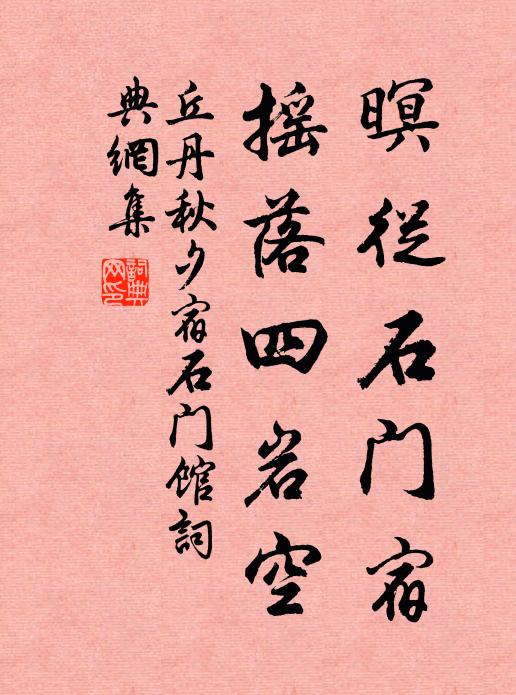 暝從石门宿
摇落四岩空
丘丹秋夕宿石门馆詞
典網集
詞典
网印